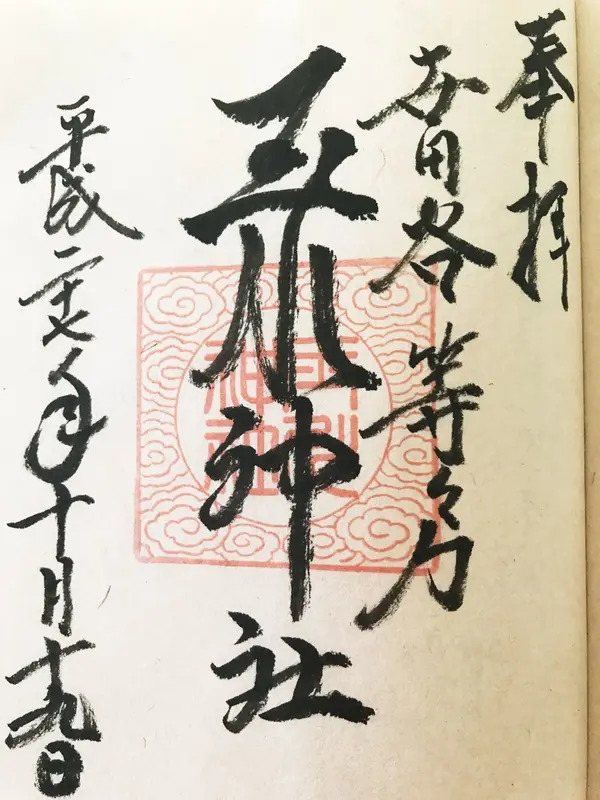 奉拝
世田谷等々力
玉川神社
平成二十七年十月十九日